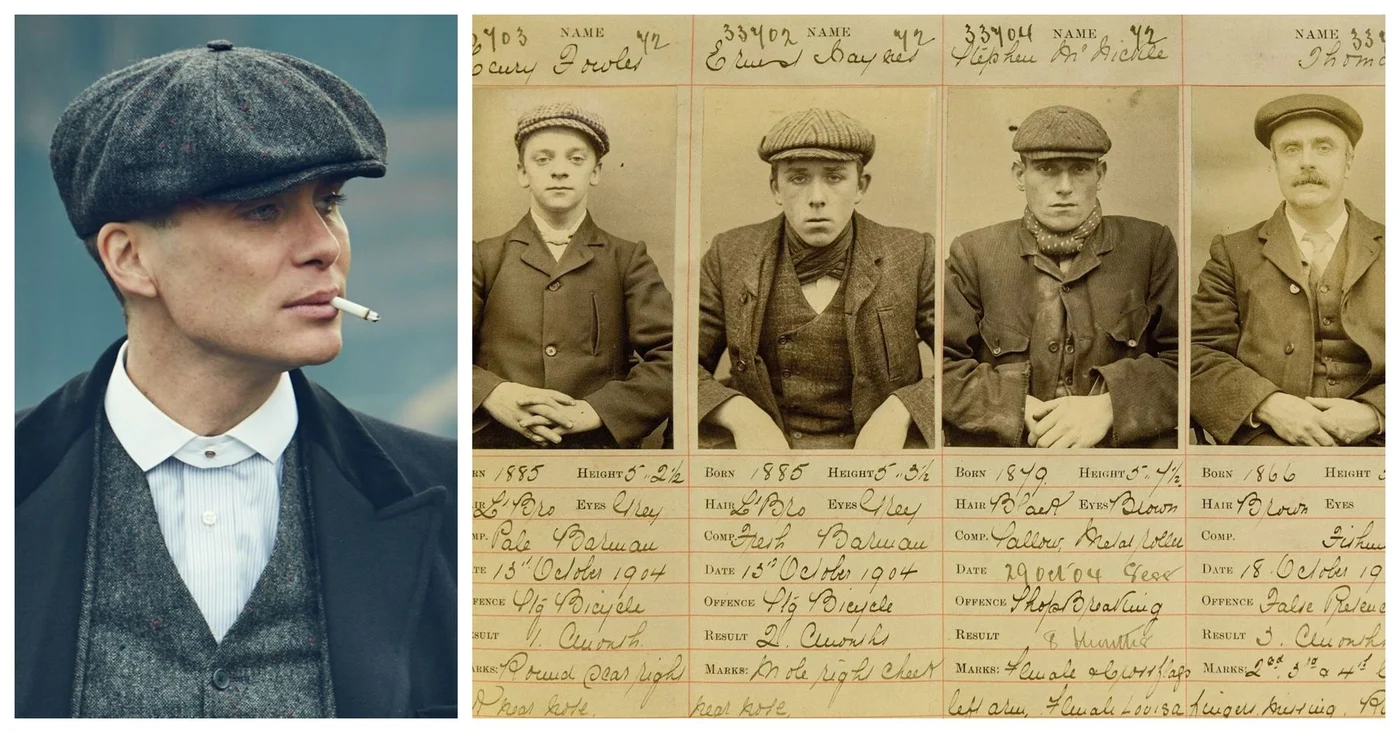 3703 NAME 72
Fowler
RN 1885 HEIGHT 5" 2½
IR L'Bro EYES Grey
MP. Pale Barman
TE 13th October 1904
FENCE Stg Bicycle
SULT 1. Cmonth
MARKS: Round scar right
near nose.
33702 NAME 72
Ernest Haynes
BORN 1885 HEIGHT 5" 3½
HAIR L'Bro EYES Grey
COMP. Fresh Barman
DATE 13th October 1904
OFFENCE Stg Bicycle
RESULT 2. Cmonths
MARKS: Mole right cheek
near nose.
33704 NAME 72
Stephen McNickle
BORN 1879 HEIGHT 5" 4½
HAIR Black EYES Brown
COMP. Sallow, Metal roller
DATE 29 Oct '04 Sess
OFFENCE ShopBreaking
RESULT 8 Months
MARKS: Female & cross flags
left arm, Female Louisa
NAME 33
Thom
BORN 1866 HEIGHT 5
HAIR Brown EYES
COMP. Fishm
DATE 18 October 19
OFFENCE False Pretenc
RESULT 3. Cmonths
MARKS: 2nd. 3rd & 4th
fingers missing.